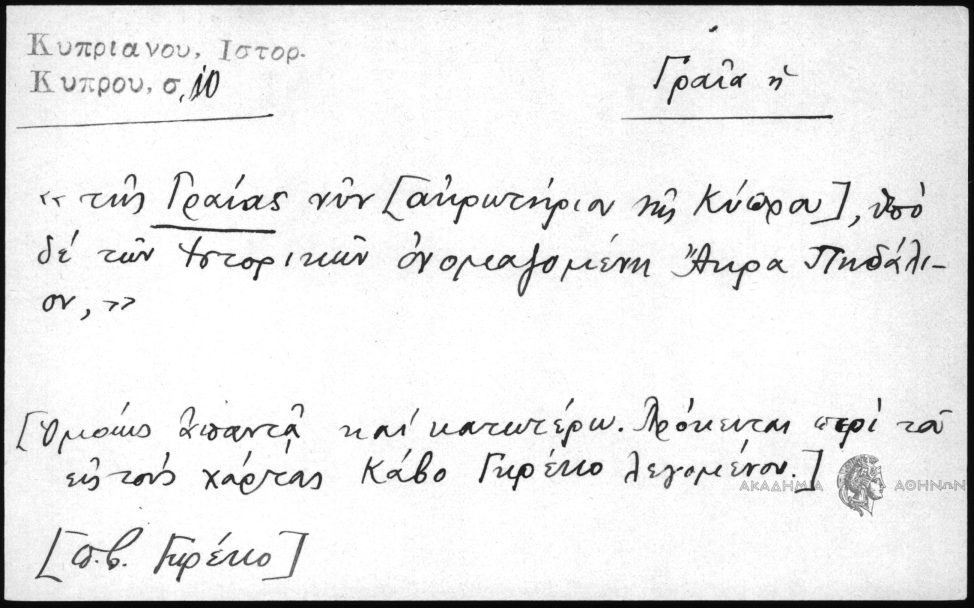 Κυπριανου, Ιστορ.
Κυπρου, σ, 10
Γραῖα ἡ
«τῆς Γραίας νῦν [ἀκρωτήριον τῆς Κύπρου], ὑπὸ
δέ τῶν Ἱστορικῶν ὀνομαζομένη Ἄκρα Πηδάλι-
ον,»
[Ὁμοίως ἀπαντᾷ καί κατωτέρω. Πρόκειται περὶ τοῦ
εἰς τοὺς χάρτας Κάβο Γκρέκο λεγομένου.]
ΑΚΑΔΗΜΙΑ ΑΘΗΝΩΝ
[π.β. Γκρέκο]